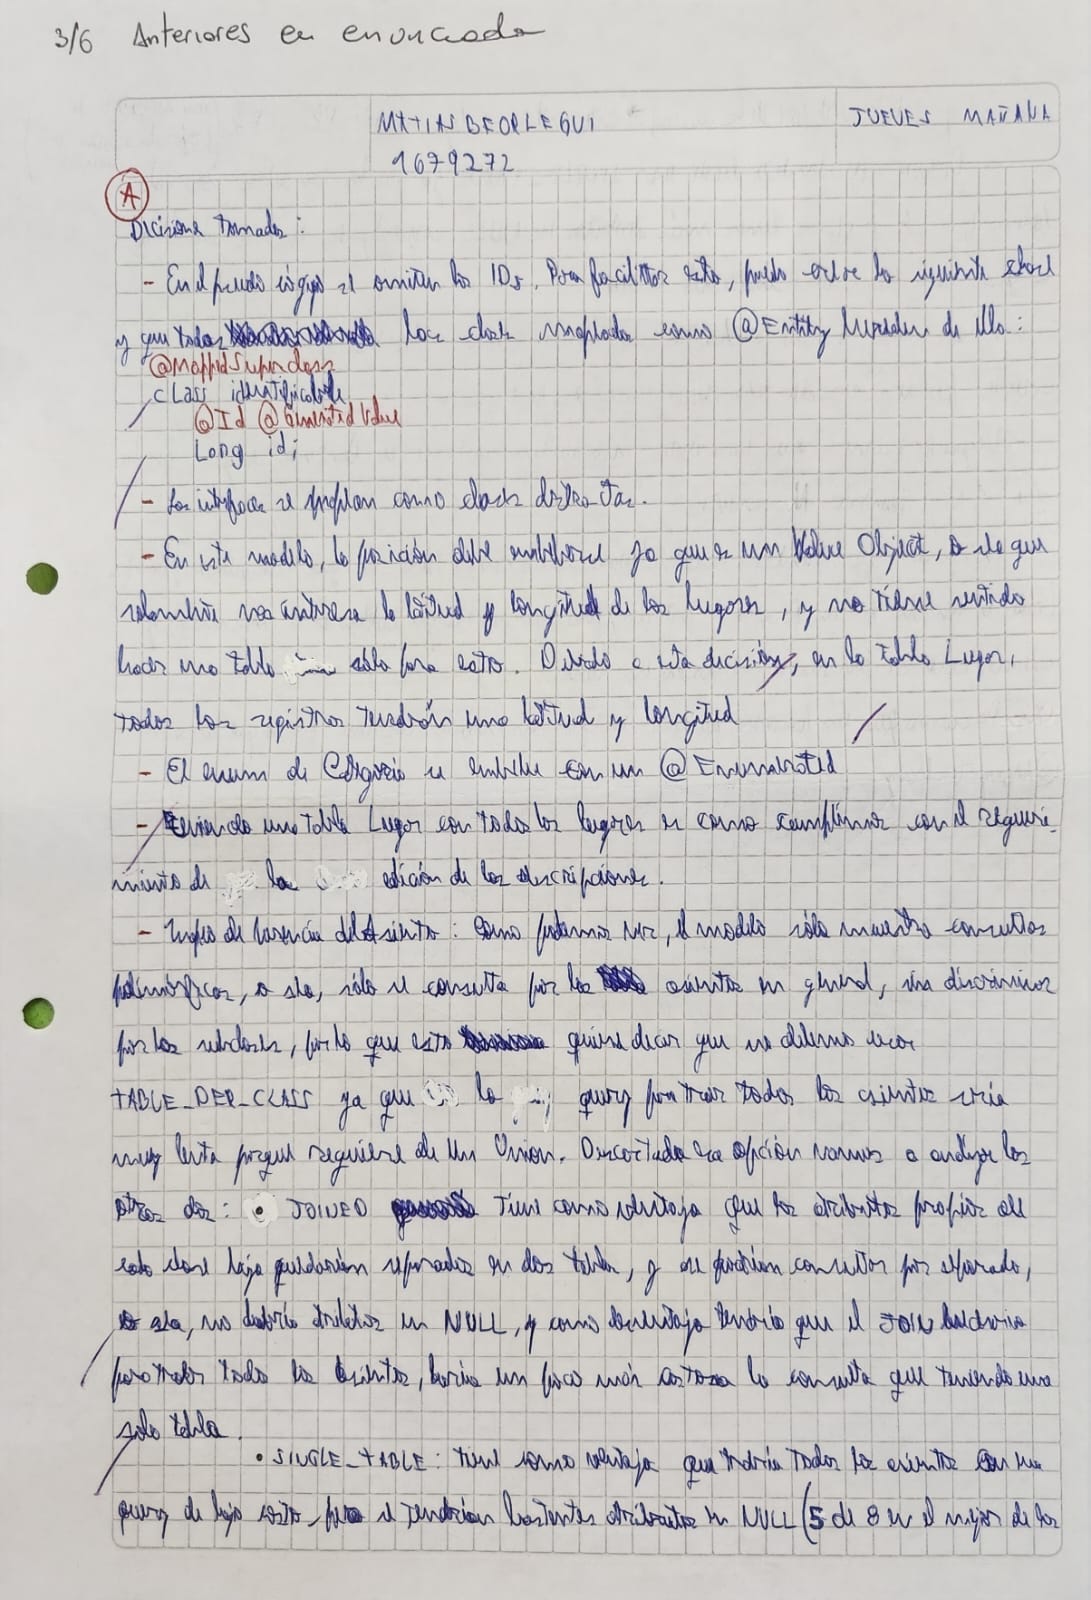 3/6 Anteriores en enunciado
MATIAS BEORLEGUI
JUEVES MAÑANA
1679272
A
Decisiones tomadas:
- En el pseudo código se omiten los IDs. Para facilitar esto, puedo crear la siguiente clase
y que todas las clases mapeadas como @Entity hereden de ella:
@MappedSuperclass
class identificable
@Id @GeneratedValue
Long id;
- Las interfaces se modelan como clases abstractas.
- En este modelo, la posición debe embeberse ya que es un Value Object, o sea que
solamente nos interesa la latitud y longitud de los lugares, y no tiene sentido
hacer una tabla sólo para esto. Debido a esta decisión, en la tabla Lugar,
todos los registros tendrán una latitud y longitud
- El enum de Categoria se embebe con un @Enumerated
- Teniendo una tabla Lugar con todos los lugares es como cumplimos con el requeri-
miento de la edición de las descripciones.
- Mapeo de herencia del Asiento: Como podemos ver, el modelo sólo muestra consultas
polimórficas, o sea, sólo se consulta por los asientos en general, sin discriminar
por las subclases, por lo que esto quiere decir que no debemos usar
TABLE_PER_CLASS ya que la query para traer todos los asientos sería
muy lenta porque requiere de un Union. Descartada esa opción vamos a analizar las
otras dos: • JOINED tiene como ventaja que los atributos propios de
cada clase hija quedarían separados en dos tablas, y se podrían consultar por separado,
o sea, no habría atributos en NULL, y como desventaja tendría que el JOIN
para traer todos los asientos, haría un poco más costosa la consulta que teniendo una
sola tabla.
• SINGLE_TABLE: tiene como ventaja que traería todos los asientos con una
query de bajo costo, pero se tendrían bastantes atributos en NULL (5 de 8 en el mejor de los